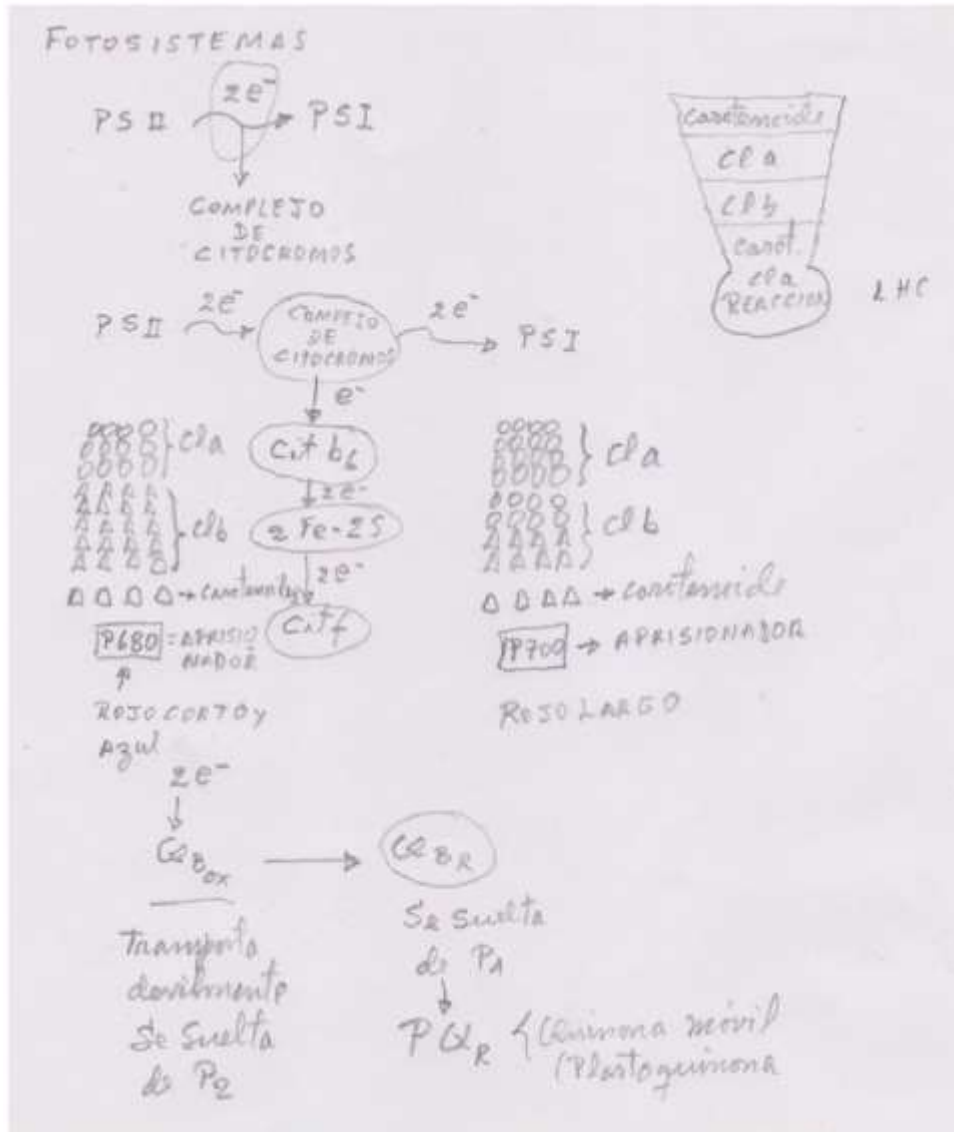 FOTOSISTEMAS
2e⁻
PS II → PSI
COMPLEJO
DE
CITOCROMOS
carotenoide
Cl a
Cl b
carot.
cl a
REACCION
LHC
PS II 2e⁻ COMPLEJO DE CITOCROMOS 2e⁻ PSI
e⁻
Cit b6
2e⁻
2 Fe-2S
2e⁻
Cit f
cl a
cl b
P680 = APRISIO
NADOR
ROJO CORTO y
Azul
cl a
cl b
→ carotenoide
P700 → APRISIONADOR
ROJO LARGO
2e⁻
QB OX → QB R
Transporta
devilmente
Se suelta
de P2
Se suelta
de P1
PQR { Quinona móvil
(Plastoquinona